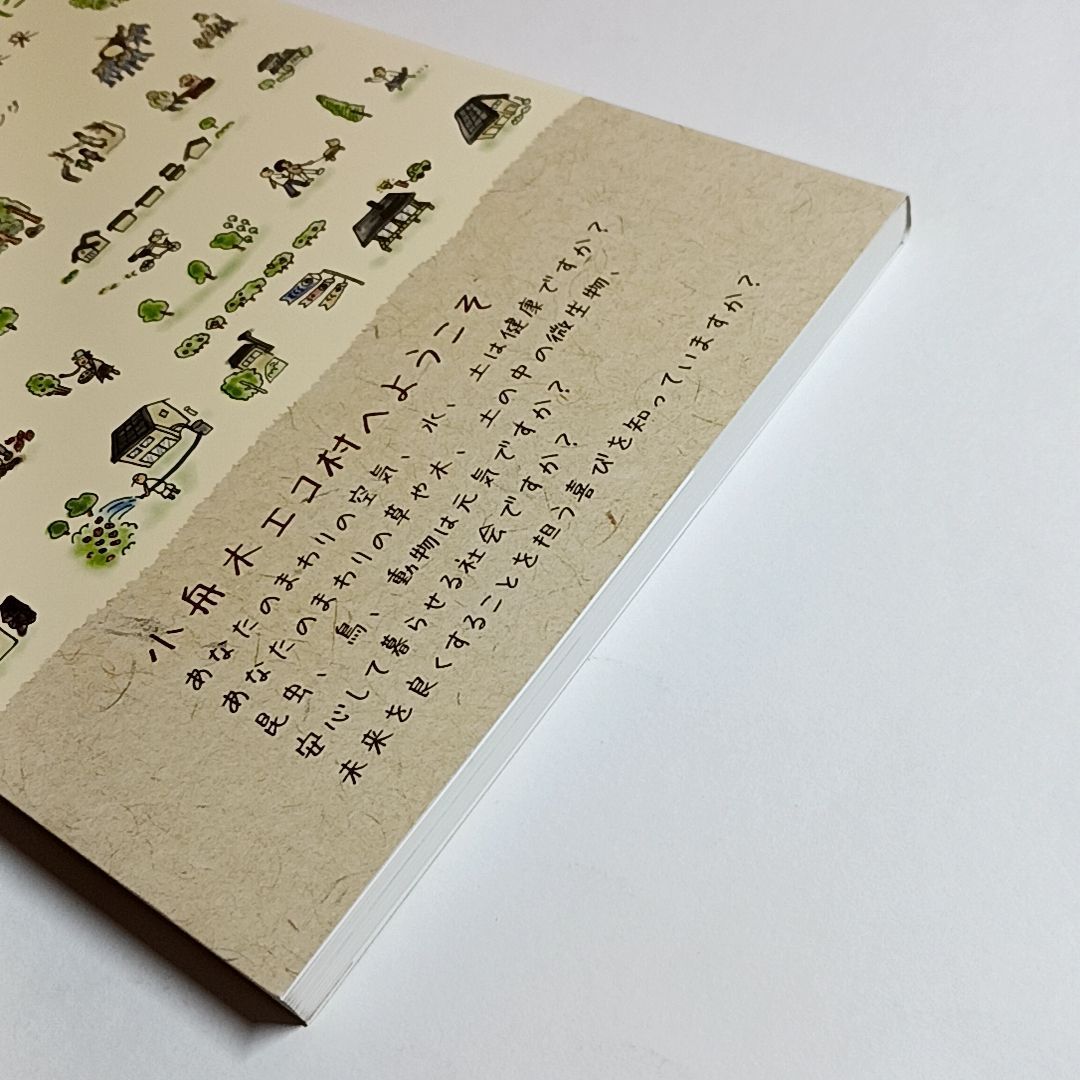 小舟木エコ村へようこそ
あなたのまわりの空気、水、土は健康ですか？
あなたのまわりの草や木、土の中の微生物、
昆虫、鳥、動物は元気ですか？
安心して暮らせる社会ですか？
未来を良くすることを担う喜びを知っていますか？